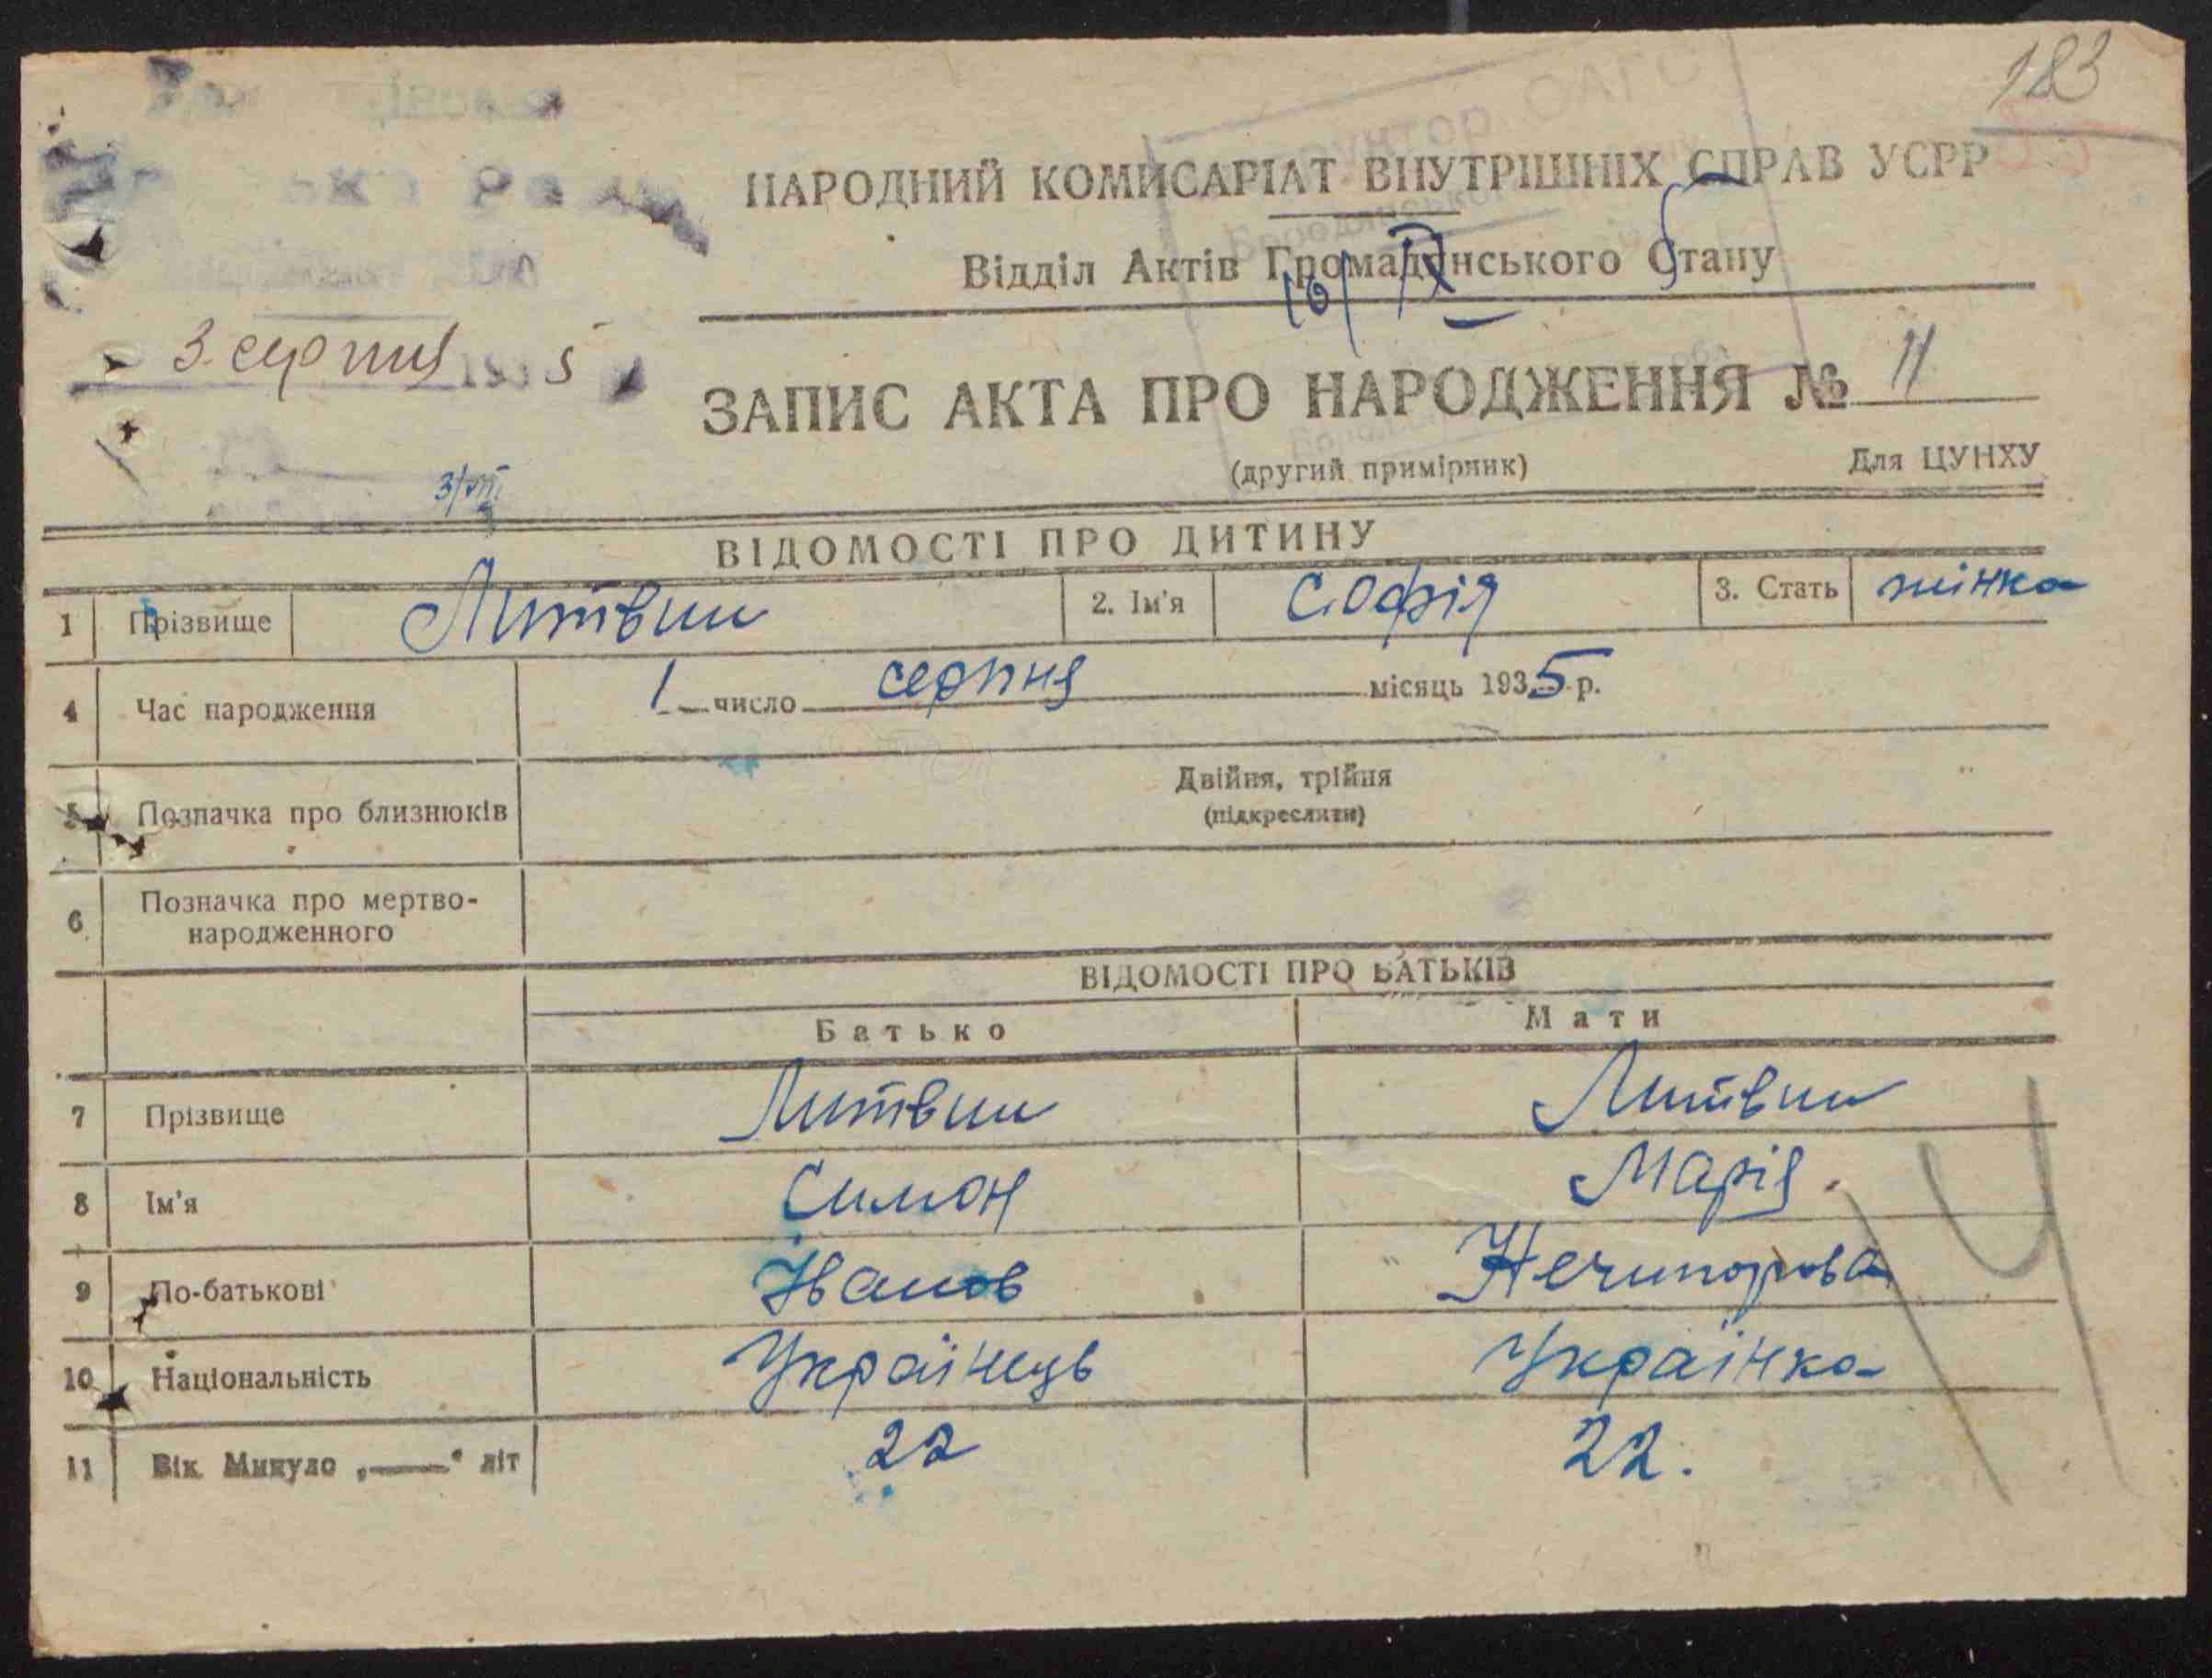 183
НАРОДНИЙ КОМИСАРІАТ ВНУТРІШНІХ СПРАВ УСРР
Відділ Актів Громадянського Стану
16/IX
3 серпня 1935
ЗАПИС АКТА ПРО НАРОДЖЕННЯ № 11
(другий примірник) Для ЦУНХУ
3/VIII
ВІДОМОСТІ ПРО ДИТИНУ
1 Прізвище Литвин 2. Ім'я Софія 3. Стать жінка
4 Час народження 1 число серпня місяць 1935 р.
Двійня, трійня
5 Позначка про близнюків (підкреслити)
6 Позначка про мертво-
народженного
ВІДОМОСТІ ПРО БАТЬКІВ
Батько Мати
7 Прізвище Литвин Литвин
8 Ім'я Симон Марія.
9 По-батькові Іванов Нечипорова
10 Національність Українець Українка
11 Вік. Минуло „——“ літ 22 22.